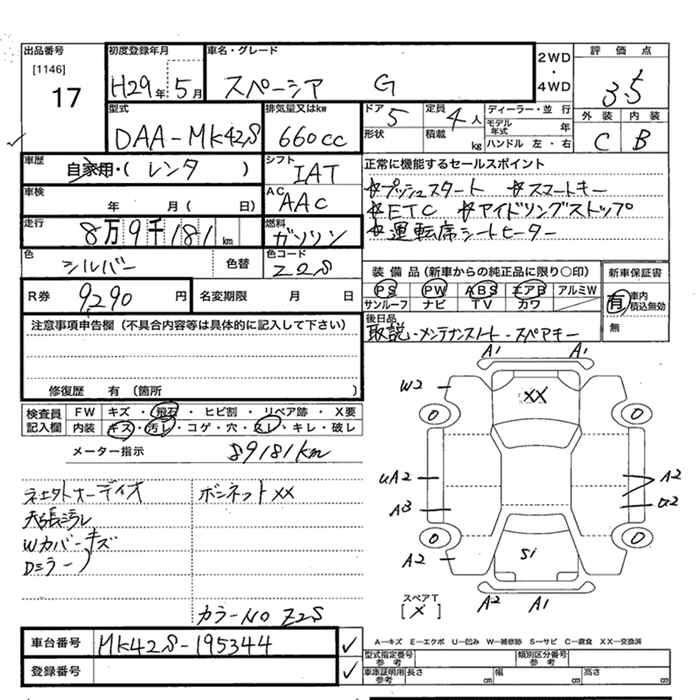 出品番号
[1146]
17
初度登録年月
H29年 5月
車名・グレード
スペーシア G
2WD
・
4WD
評価点
3.5
外装 内装
C B
型式
DAA-MK42S
排気量又はkw
660cc
ドア
5
定員
4人
形状
積載
kg
ディーラー・並行
モデル年式 年
ハンドル 左・右
車歴
自家用・(レンタ)
シフト
IAT
車検
年 月( 日)
AC
AAC
走行
8万9千181km
燃料
ガソリン
色
シルバー
色替
色コード
Z2S
正常に機能するセールスポイント
☆プッシュスタート ☆スマートキー
☆ETC ☆アイドリングストップ
☆運転席シートヒーター
装備品(新車からの純正品に限り○印)
PS PW ABS エアB アルミW
サンルーフ ナビ TV カワ
新車保証書
有 車内積込無効
無
R券 9,290円
名変期限 月 日
後日品
取説-メンテナンスノート-スペアキー
注意事項申告欄(不具合内容等は具体的に記入して下さい)
修復歴 有(箇所 )
検査員記入欄
FW キズ・飛石・ヒビ割・リペア跡・X要
内装 キズ・汚レ・コゲ・穴・スレ・キレ・破レ
メーター指示 89181km
オーディオ
ボンネットXX
天張汚レ
Wカバーキズ
Dミラー〃
カラーNO Z2S
A1 A1
W2
XX
0 0
uA2
A3
A2
A2
0 0
A2
S1
スペアT
[メ]
A2 A1
車台番号 MK42S-195344 ✓
登録番号 ✓
A―キズ E―エクボ U―凹み W―補修跡 S―サビ C―腐食 XX―交換済
型式指定番号 参考
類別区分番号 参考
車庫証明用 参考
長さ cm
幅 cm
高さ cm